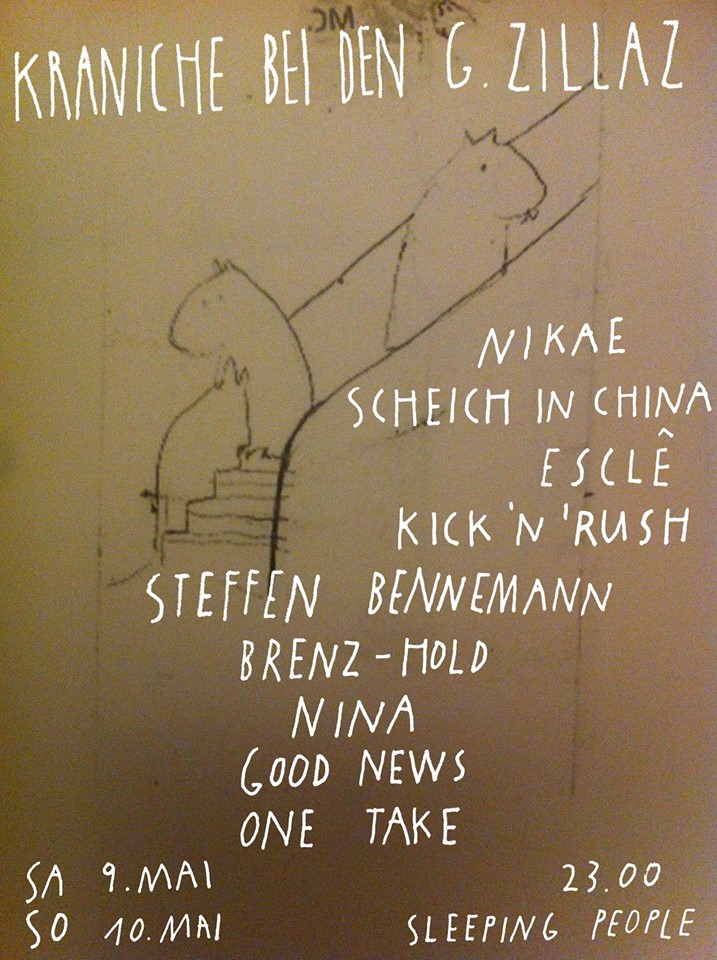 KRANICHE BEI DEN G. ZILLAZ
NIKAE
SCHEICH IN CHINA
ESCLÊ
KICK 'N 'RUSH
STEFFEN BENNEMANN
BRENZ-HOLD
NINA
GOOD NEWS
ONE TAKE
SA 9. MAI 23.00
SO 10. MAI SLEEPING PEOPLE